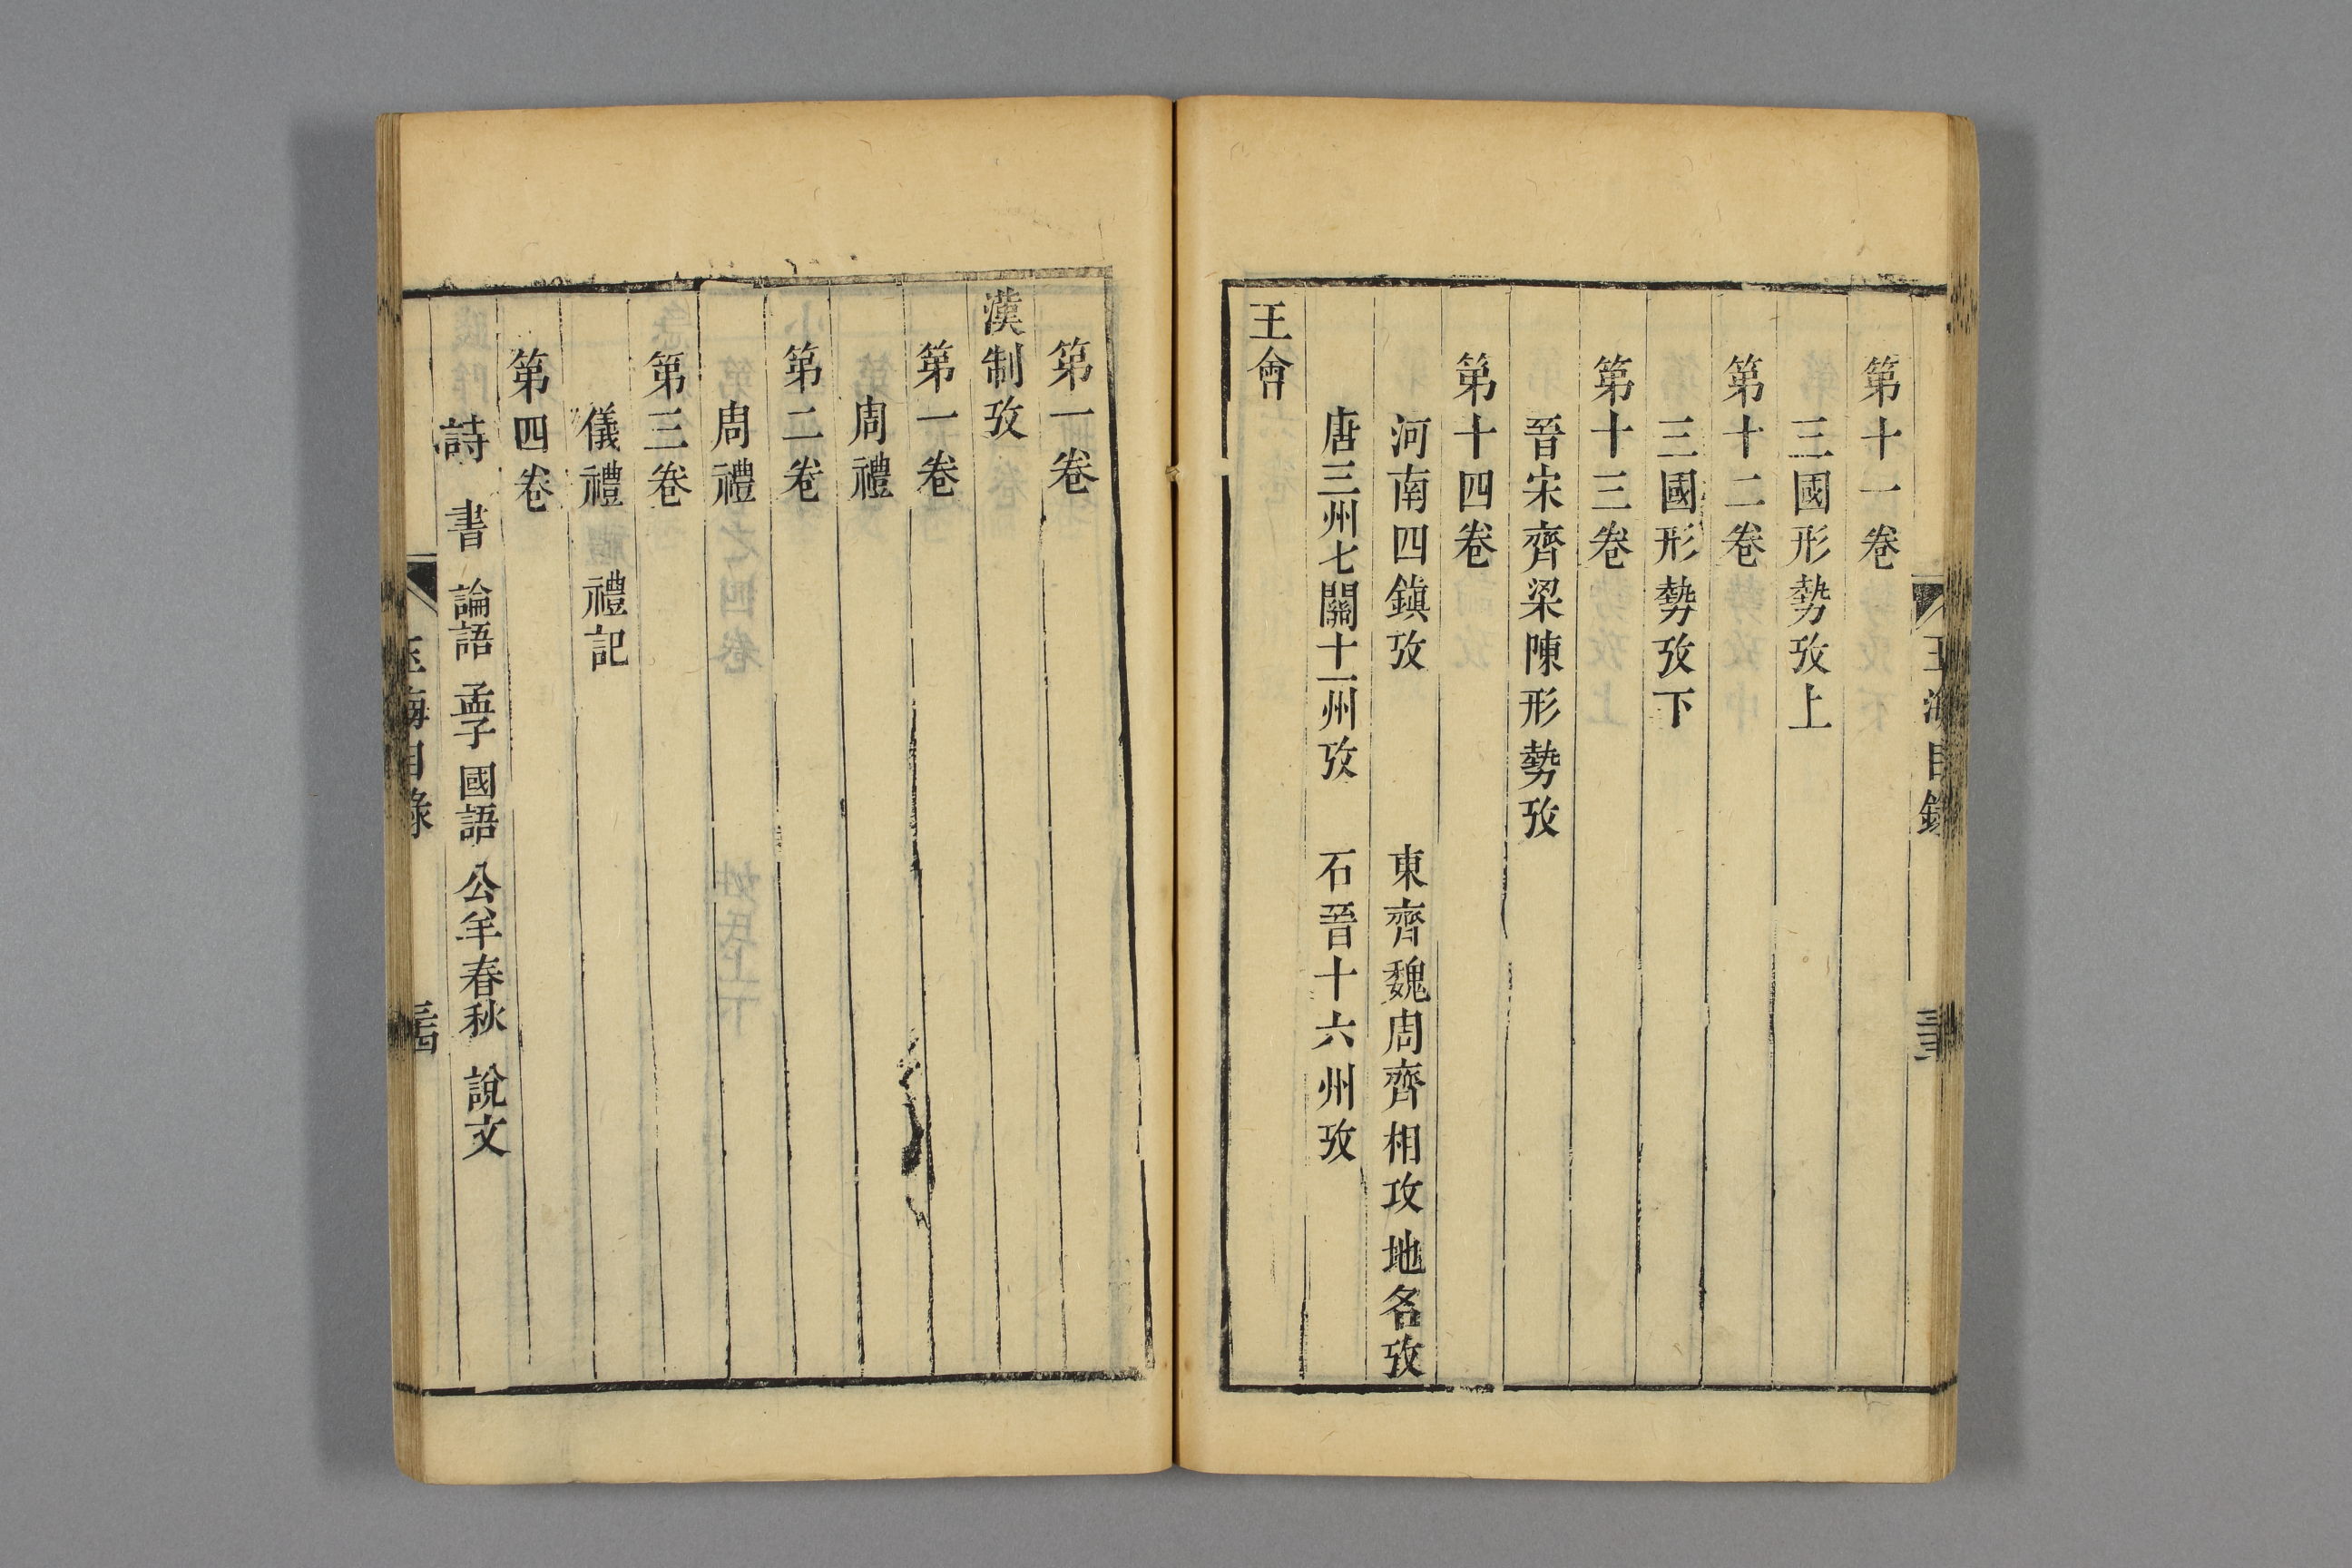 第十一卷
三國形勢攷上
第十二卷
三國形勢攷下
第十三卷
晉宋齊梁陳形勢攷
第十四卷
河南四鎭攷　東齊魏周齊相攻地名攷
唐三州七關十一州攷　石晉十六州攷
王會
第一卷
漢制攷
第一卷
周禮
第二卷
周禮
第三卷
儀禮　禮記
第四卷
詩　書　論語　孟子　國語　公羊春秋　說文
玉海目錄